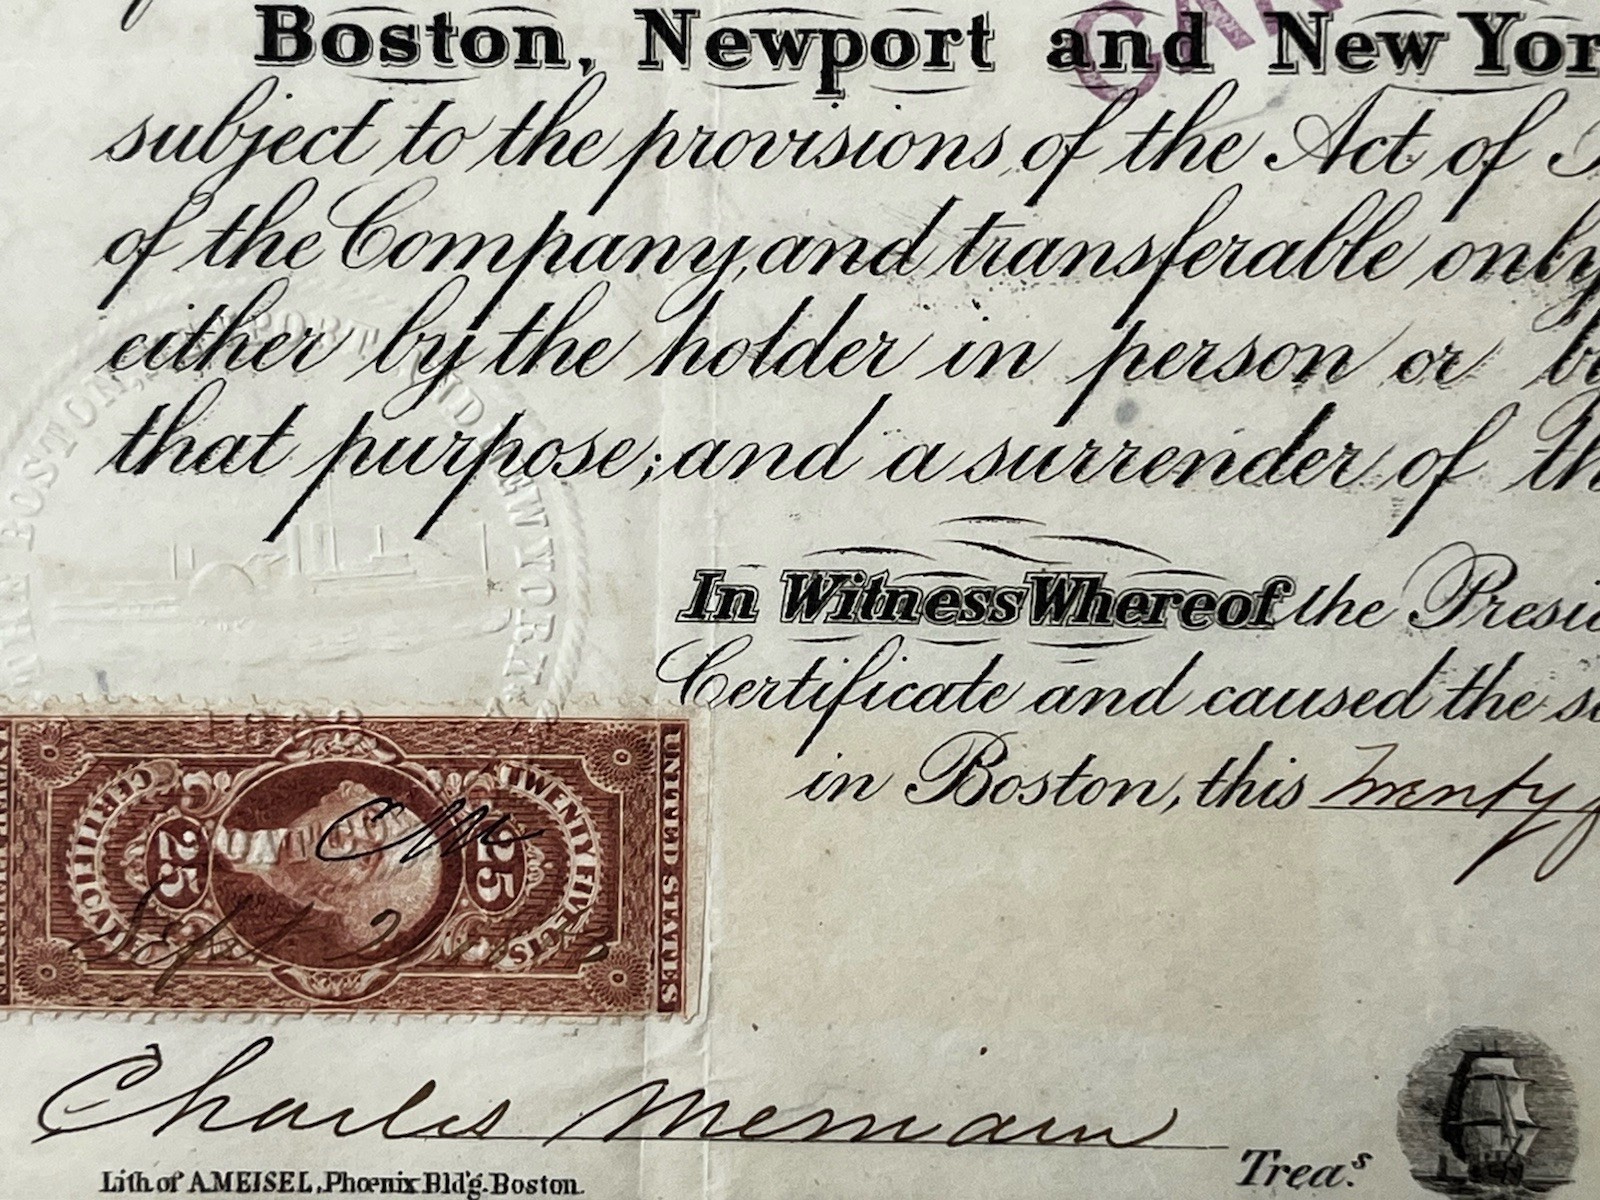 Boston, Newport and New Yor
CAN
subject to the provisions of the Act of
of the Company, and transferable only
either by the holder in person or by
that purpose; and a surrender of th
THE BOSTON, NEWPORT AND NEW YORK
In Witness Whereof the Presid
Certificate and caused the se
in Boston, this Twenty f
CERTIFICATE
TWENTY FIVE CTS
25
25
UNITED STATES
CM
Sept 2
Charles Merriam
Treas.
Lith. of A. MEISEL, Phœnix Bld'g. Boston.